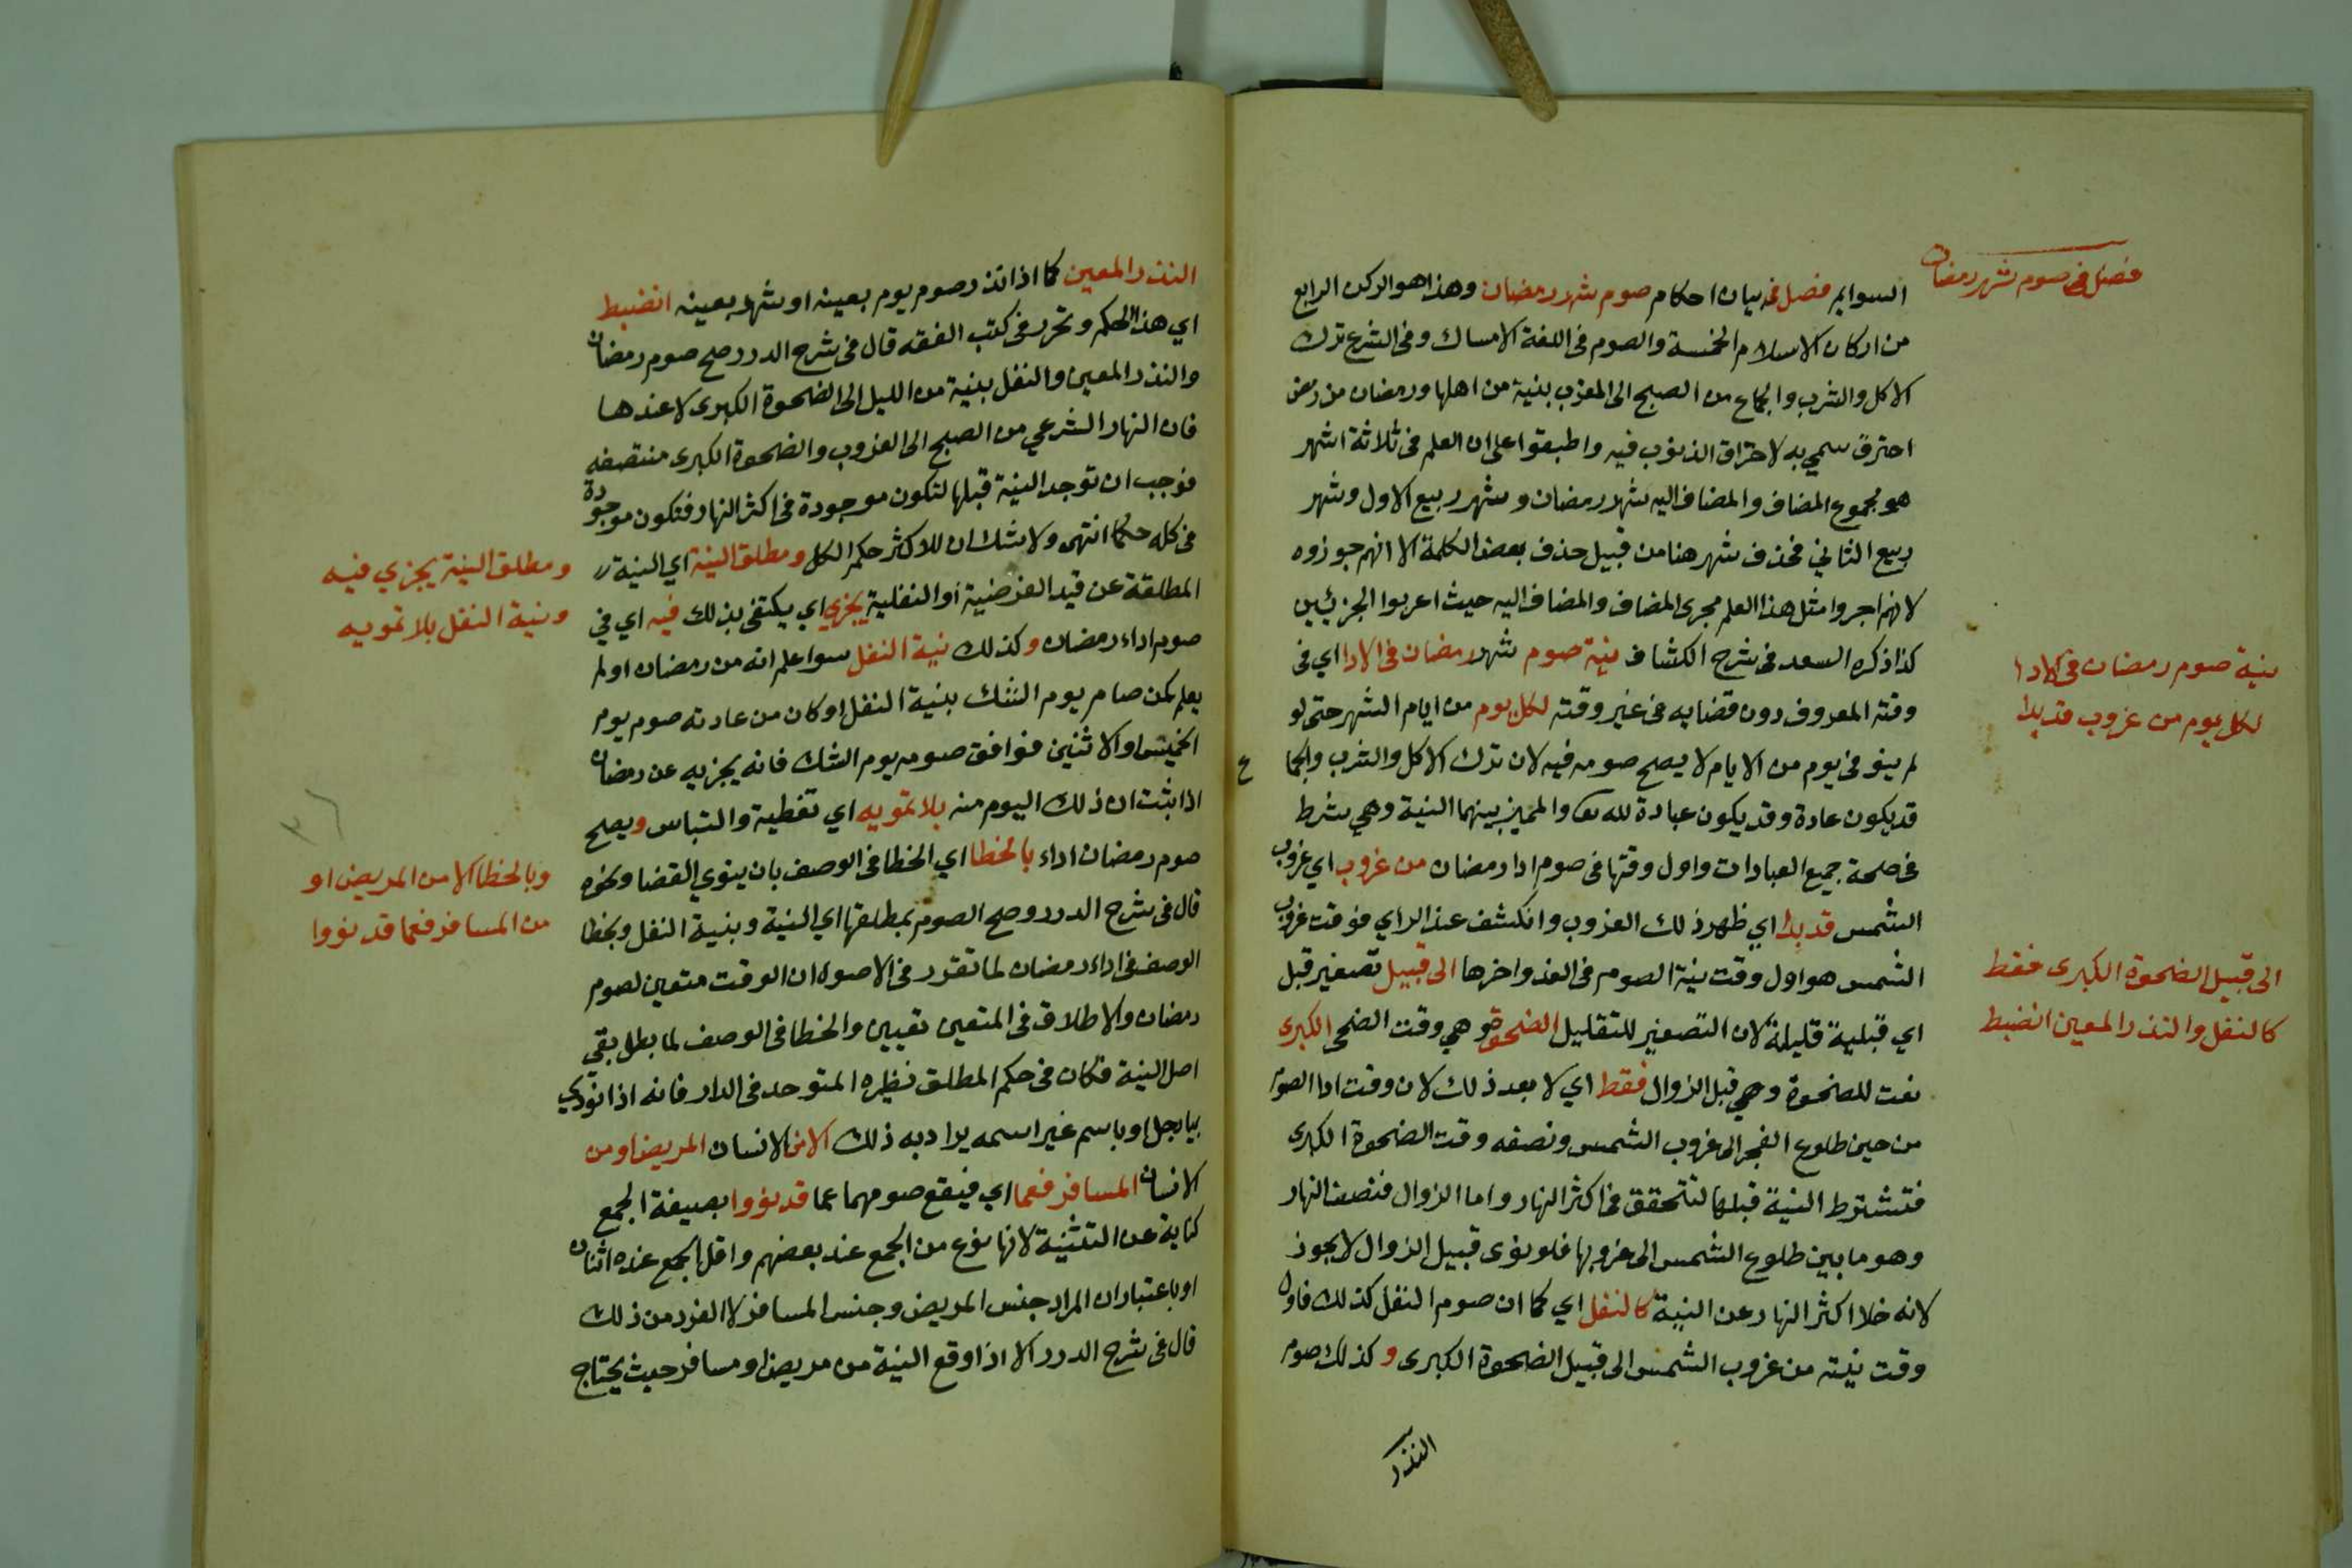 فصل في صوم شهر رمضان
السوايم فصل في بيان احكام صوم شهر رمضان وهذا هو الركن الرابع
من اركان الاسلام الخمسة والصوم في اللغة الامساك وفي الشرع ترك
الاكل والشرب والجماع من الصبح الى المغرب بنية من اهلها ورمضان من رمض
احترق سمي به لاحتراق الذنوب فيه واطبقوا على ان العلم في ثلاثة اشهر
هو مجموع المضاف والمضاف اليه شهر رمضان وشهر ربيع الاول وشهر
ربيع الثاني فحذف شهر هنا من قبيل حذف بعض الكلمة الا انهم جوزوه
لانهم اجروا مثل هذا العلم مجرى المضاف والمضاف اليه حيث اعربوا الجزئين
كذا ذكره السعد في شرح الكشاف نية صوم شهر رمضان في الادا اي في
وقته المعروف دون قضايه في غير وقته لكل يوم من ايام الشهر حتى لو
لم ينو في يوم من الايام لا يصح صومه فيه لان ترك الاكل والشرب والجماع
قد يكون عادة وقد يكون عبادة لله تعا والمميز بينهما النية وهي شرط
في صحة جميع العبادات واول وقتها في صوم ادا رمضان من غروب اي غروب
الشمس قد بدا اي ظهر ذلك الغروب وانكشف عند الراي فوقت غروب
الشمس هو اول وقت نية الصوم في الغد واخرها الى قبيل تصغير قبل
اي قبلية قليلة لان التصغير للتقليل الضحوة وهي وقت الضحى الكبرى
نعت للضحوة وهي قبل الزوال فقط اي لا بعد ذلك لان وقت ادا الصوم
من حين طلوع الفجر الى غروب الشمس ونصفه وقت الضحوة الكبرى
فتشترط النية قبلها لتتحقق في اكثر النهار واما الزوال فنصف النهار
وهو ما بين طلوع الشمس الى غروبها فلو نوى قبيل الزوال لا يجوز
لانه خلا اكثر النهار عن النية كالنفل اي كما ان صوم النفل كذلك فاول
وقت نيته من غروب الشمس الى قبيل الضحوة الكبرى وكذلك صوم
النذر
نية صوم رمضان في الادا
لكل يوم من غروب قد بدا
الى قبيل الضحوة الكبرى فقط
كالنفل والنذر المعين انضبط
النذر المعين كما اذا نذر صوم يوم بعينه او شهر بعينه انضبط
اي هذا الحكم وتحرر في كتب الفقه قال في شرح الدرر صح صوم رمضان
والنذر المعين والنفل بنية من الليل الى الضحوة الكبرى لا عندها
فان النهار الشرعي من الصبح الى الغروب والضحوة الكبرى منتصفه
فوجب ان توجد النية قبلها لتكون موجودة في اكثر النهار فتكون موجودة
في كله حكما انتهى ولا شك ان للاكثر حكم الكل ومطلق النية اي النية
المطلقة عن قيد الفرضية او النفلية يجزي اي يكتفى بذلك فيه اي في
صوم اداء رمضان وكذلك نية النفل سوا علم انه من رمضان او لم
يعلم كمن صام يوم الشك بنية النفل او كان من عادته صوم يوم
الخميس او الاثنين فوافق صومه يوم الشك فانه يجزيه عن رمضان
اذا ثبت ان ذلك اليوم منه بلا تمويه اي تغطية والتباس ويصح
صوم رمضان اداء بالخطا اي الخطا في الوصف بان ينوي القضا ونحوه
قال في شرح الدرر وصح الصوم بمطلقها اي النية وبنية النفل وبخطا
الوصف في اداء رمضان لما تقرر في الاصول ان الوقت متعين لصوم
رمضان والاطلاق في المتعين تعيين والخطا في الوصف لما بطل بقي
اصل النية فكان في حكم المطلق نظيره المتوحد في الدار فانه اذا نودي
بيا رجل او باسم غير اسمه يراد به ذلك الا من الانسان المريض او من
الانسان المسافر فعما اي فيقع صومهما عما قد نووا بصيغة الجمع
كناية عن التثنية لانها نوع من الجمع عند بعضهم واقل الجمع عنده اثنان
او باعتبار ان المراد جنس المريض وجنس المسافر لا الفرد من ذلك
قال في شرح الدرر الا اذا وقع النية من مريض او مسافر حيث يحتاج
ومطلق النية يجزي فيه
ونية النفل بلا تمويه
وبالخطا الا من المريض او
من المسافر فعما قد نووا